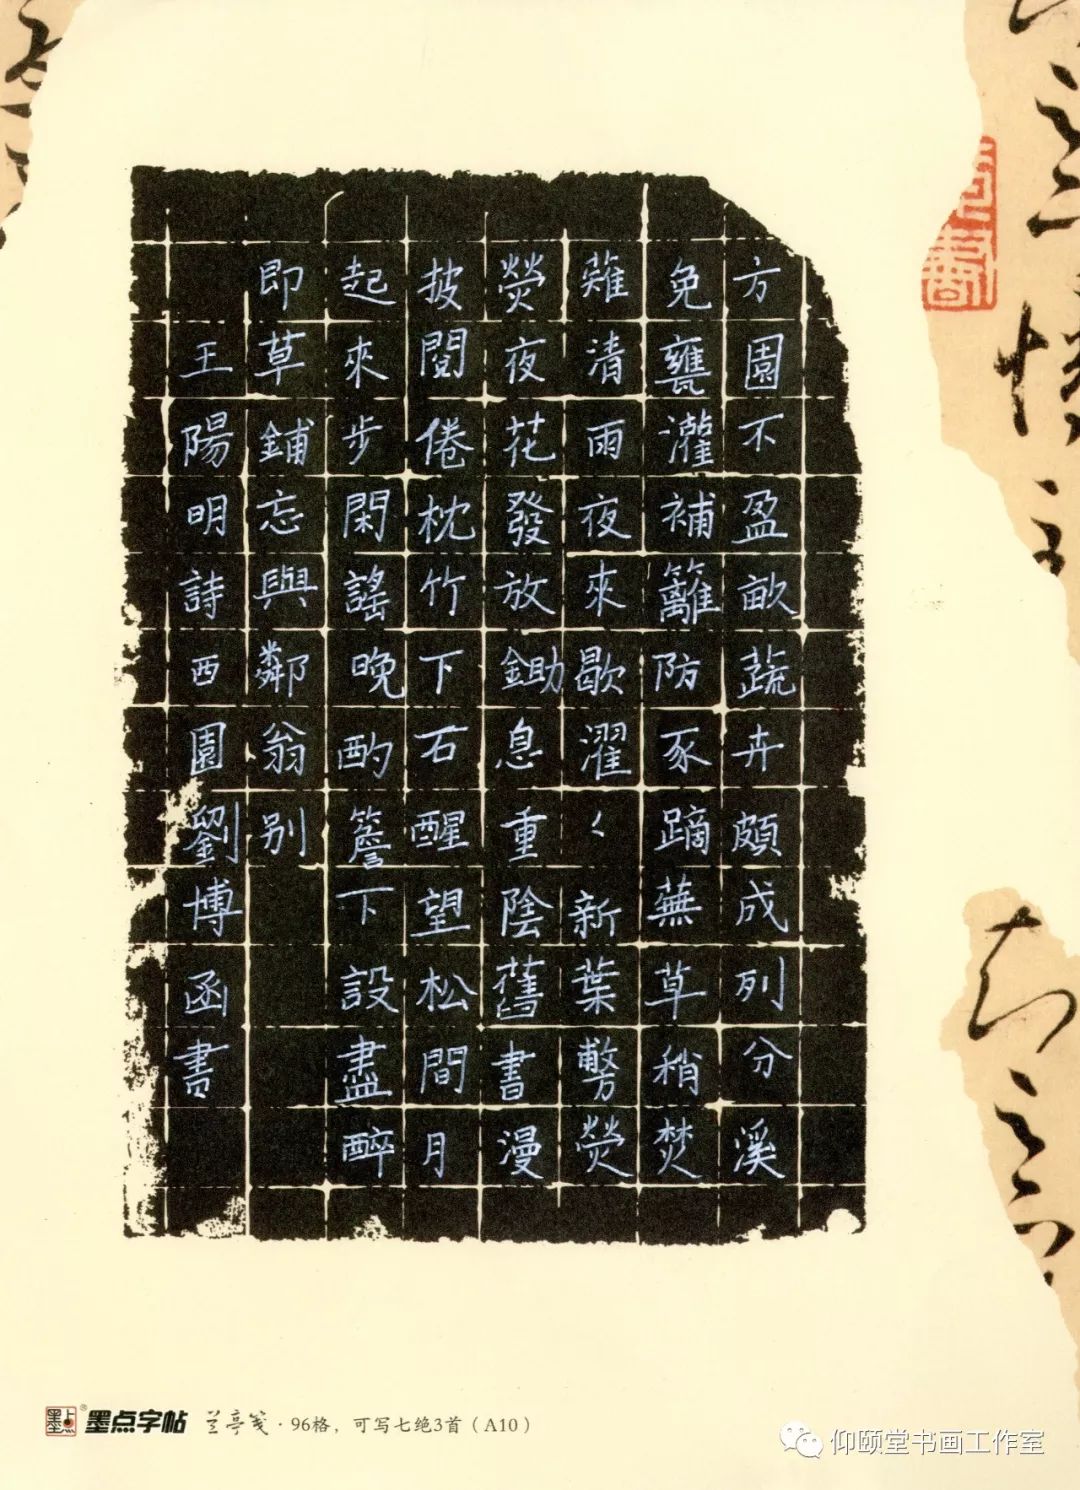 方園不盈畝蔬卉頗成列分溪
免甕灌補籬防豕蹢蕪草稍焚
薙清雨夜來歇濯〻新葉㢡熒
熒夜花發放鋤息重陰舊書漫
披閱倦枕竹下石醒望松間月
起來步閑謠晚酌簷下設盡醉
即草鋪忘與鄰翁別
王陽明詩西園劉博函書
墨点字帖 兰亭笺·96格，可写七绝3首（A10）
仰颐堂书画工作室